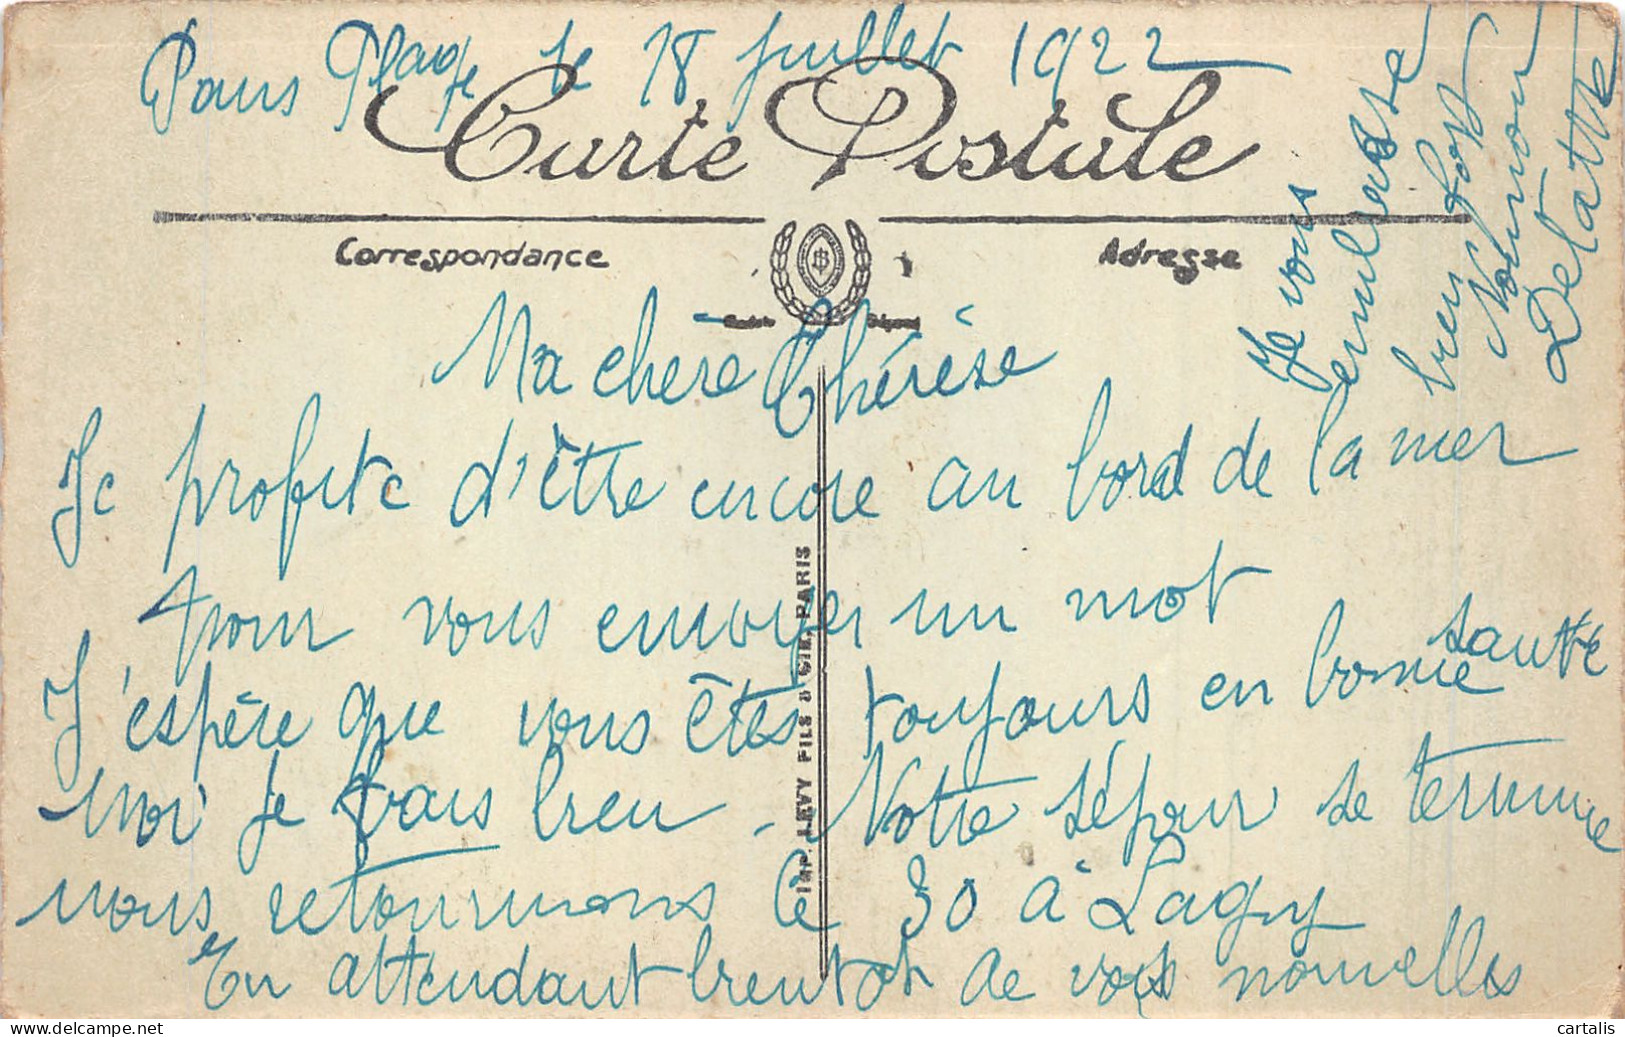 Paris Plage le 18 juillet 1922
Carte Postale
Correspondance
Adresse
Ma chère Thérèse
Je profite d'être encore au bord de la mer
pour vous envoyer un mot
J'espère que vous êtes toujours en bonne santé
Moi je vais bien - Notre séjour se termine
nous retournons le 30 à Lagny
En attendant bientot de vos nouvelles
Je vous
embrasse
bien fort
Delattre
IMP. LEVY FILS & CIE, PARIS
cartalis